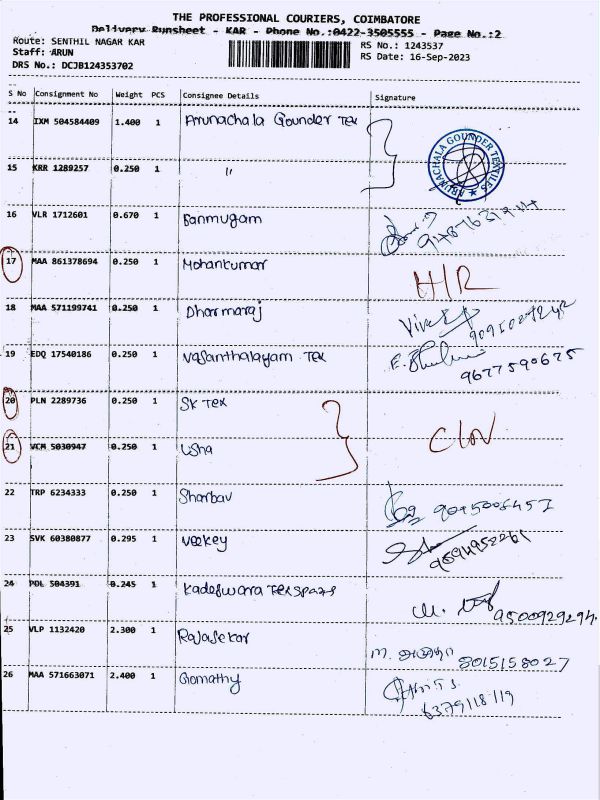 THE PROFESSIONAL COURIERS, COIMBATORE
Delivery Runsheet - KAR - Phone No.:0422-3505555 - Page No.:2
Route: SENTHIL NAGAR KAR
RS No.: 1243537
Staff: ARUN
RS Date: 16-Sep-2023
DRS No.: DCJB124353702
S No Consignment No Weight PCS Consignee Details Signature
14 IXM 504584409 1.400 1 Arunachala Gounder Tex
ARUNACHALA GOUNDER TEXTILES
15 KRR 1289257 0.250 1 "
16 VLR 1712601 0.670 1 Sanmugam
17 MAA 861378694 0.250 1 Mohankumar H/R
18 MAA 571199741 0.250 1 Dharmaraj
19 EDQ 17540186 0.250 1 Vasanthalayam Tex
9677590675
20 PLN 2289736 0.250 1 SK Tex
21 VCM 5030947 0.250 1 Usha
22 TRP 6234333 0.250 1 Sharbav
9095006457
23 SVK 60380877 0.295 1 Veekey
24 PDL 504391 0.245 1 Kadeswara
9500929294
25 VLP 1132420 2.300 1 Rajasekar
8015158027
26 MAA 571663071 2.400 1 Gomathy
6379118119